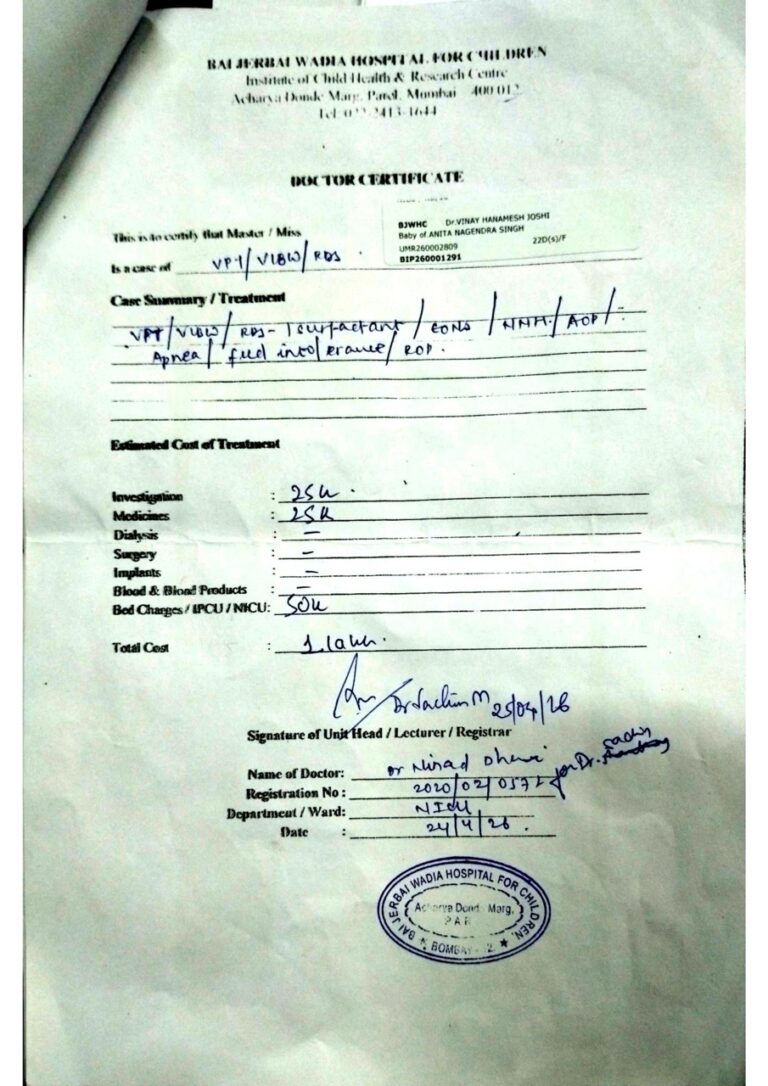 BAI JERBAI WADIA HOSPITAL FOR CHILDREN
Institute of Child Health & Research Centre
Acharya Donde Marg, Parel, Mumbai 400 012
Tel: 022-2413-1644
DOCTOR CERTIFICATE
BJWHC Dr.VINAY HANAMESH JOSHI
Baby of.ANITA NAGENDRA SINGH
UMR260002809 22D(s)/F
BIP260001291
This is to certify that Master / Miss
Is a case of VPT/VLBW/RDS
Case Summary / Treatment
VPT/VLBW/RDS- 1surfactant/EONS/NNH/AOP/
Apnea/feed intolerance/ROP.
Estimated Cost of Treatment
Investigation : 25K
Medicines : 25K
Dialysis : –
Surgery : –
Implants : –
Blood & Blood Products : –
Bed Charges / IPCU / NICU: 50K
Total Cost : 1.lakh.
Dr Sachin M 25/04/26
Signature of Unit Head / Lecturer / Registrar
Name of Doctor: Dr Nirad for Dr. Sachin
Registration No : 2020/02/0571
Department / Ward: NICU
Date : 24/4/26.
BAI JERBAI WADIA HOSPITAL FOR CHILDREN.
Acharya Dond Marg,
PAR
BOMBAY